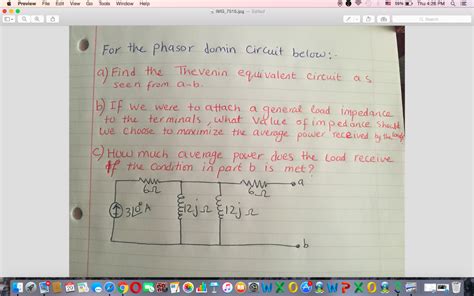 Preview File Edit View Go Tools Window Help
59% Thu 4:26 PM
IMG_7015.jpg — Edited
Search
For the phasor domin circuit below:-
a) Find the Thevenin equivalent circuit as
seen from a-b.
b) If we were to attach a general load impedance
to the terminals, what value of impedance should
we choose to maximize the average power received by the load
c) How much average power does the load receive
If the condition in part b is met?
6Ω 6Ω a
3∟0° A 12jΩ 12jΩ
b